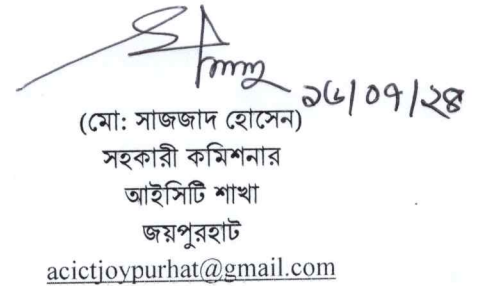 ১৫/০৭/২৪
(মো: সাজজাদ হোসেন)
সহকারী কমিশনার
আইসিটি শাখা
জয়পুরহাট
acictjoypurhat@gmail.com